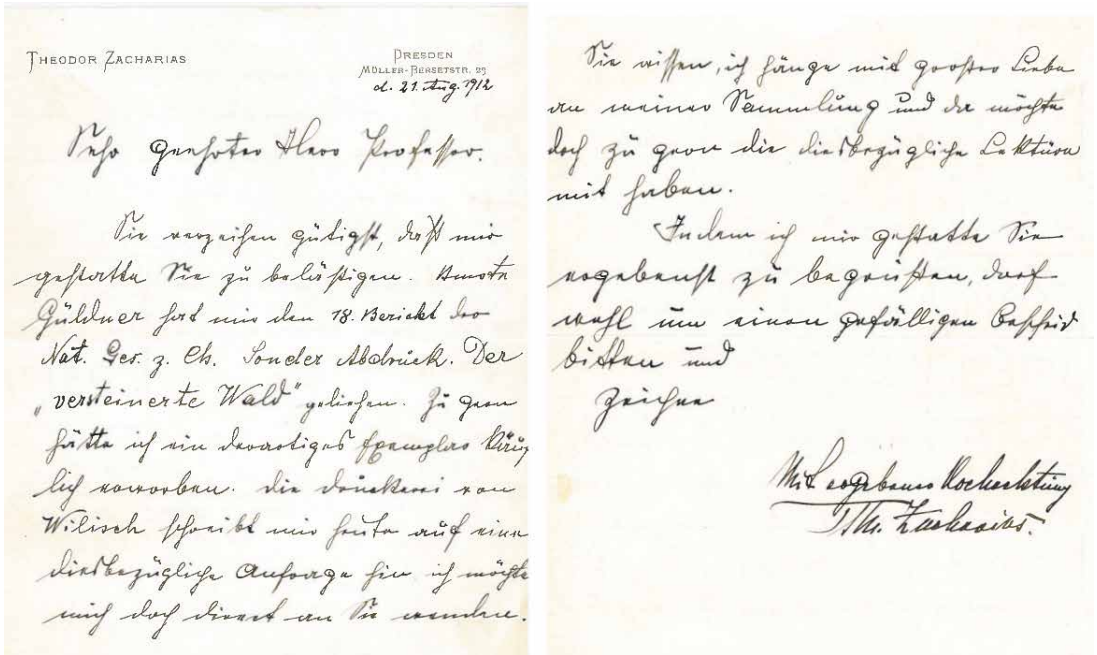 THEODOR ZACHARIAS
DRESDEN
MÜLLER-BERSETSTR. 29
d. 21. Aug. 1912
Sehr geehrter Herr Professor.
Sie verzeihen gütigst, daß mir
gestatte Sie zu belästigen.
Güldner hat mir den 18. Bericht der
Nat. Ges. z. Ch. Sonder Abdruck. Der
„versteinerte Wald" geliehen. Zu gern
hätte ich ein derartiges Exemplar käuf
lich erworben. Die Druckerei von
Wilisch schreibt mir heute auf eine
diesbezügliche Anfrage hin ich möchte
mich doch direct an Sie wenden.
Sie wissen, ich hänge mit großer Liebe
an meiner Sammlung und da möchte
doch zu gern die diesbezügliche Lektüre
mit haben.
Indem ich mir gestatte Sie
ergebenst zu begrüßen, darf
wohl um einen gefälligen Bescheid
bitten und
zeichne
Mit ergebener Hochachtung
Th. Zacharias.